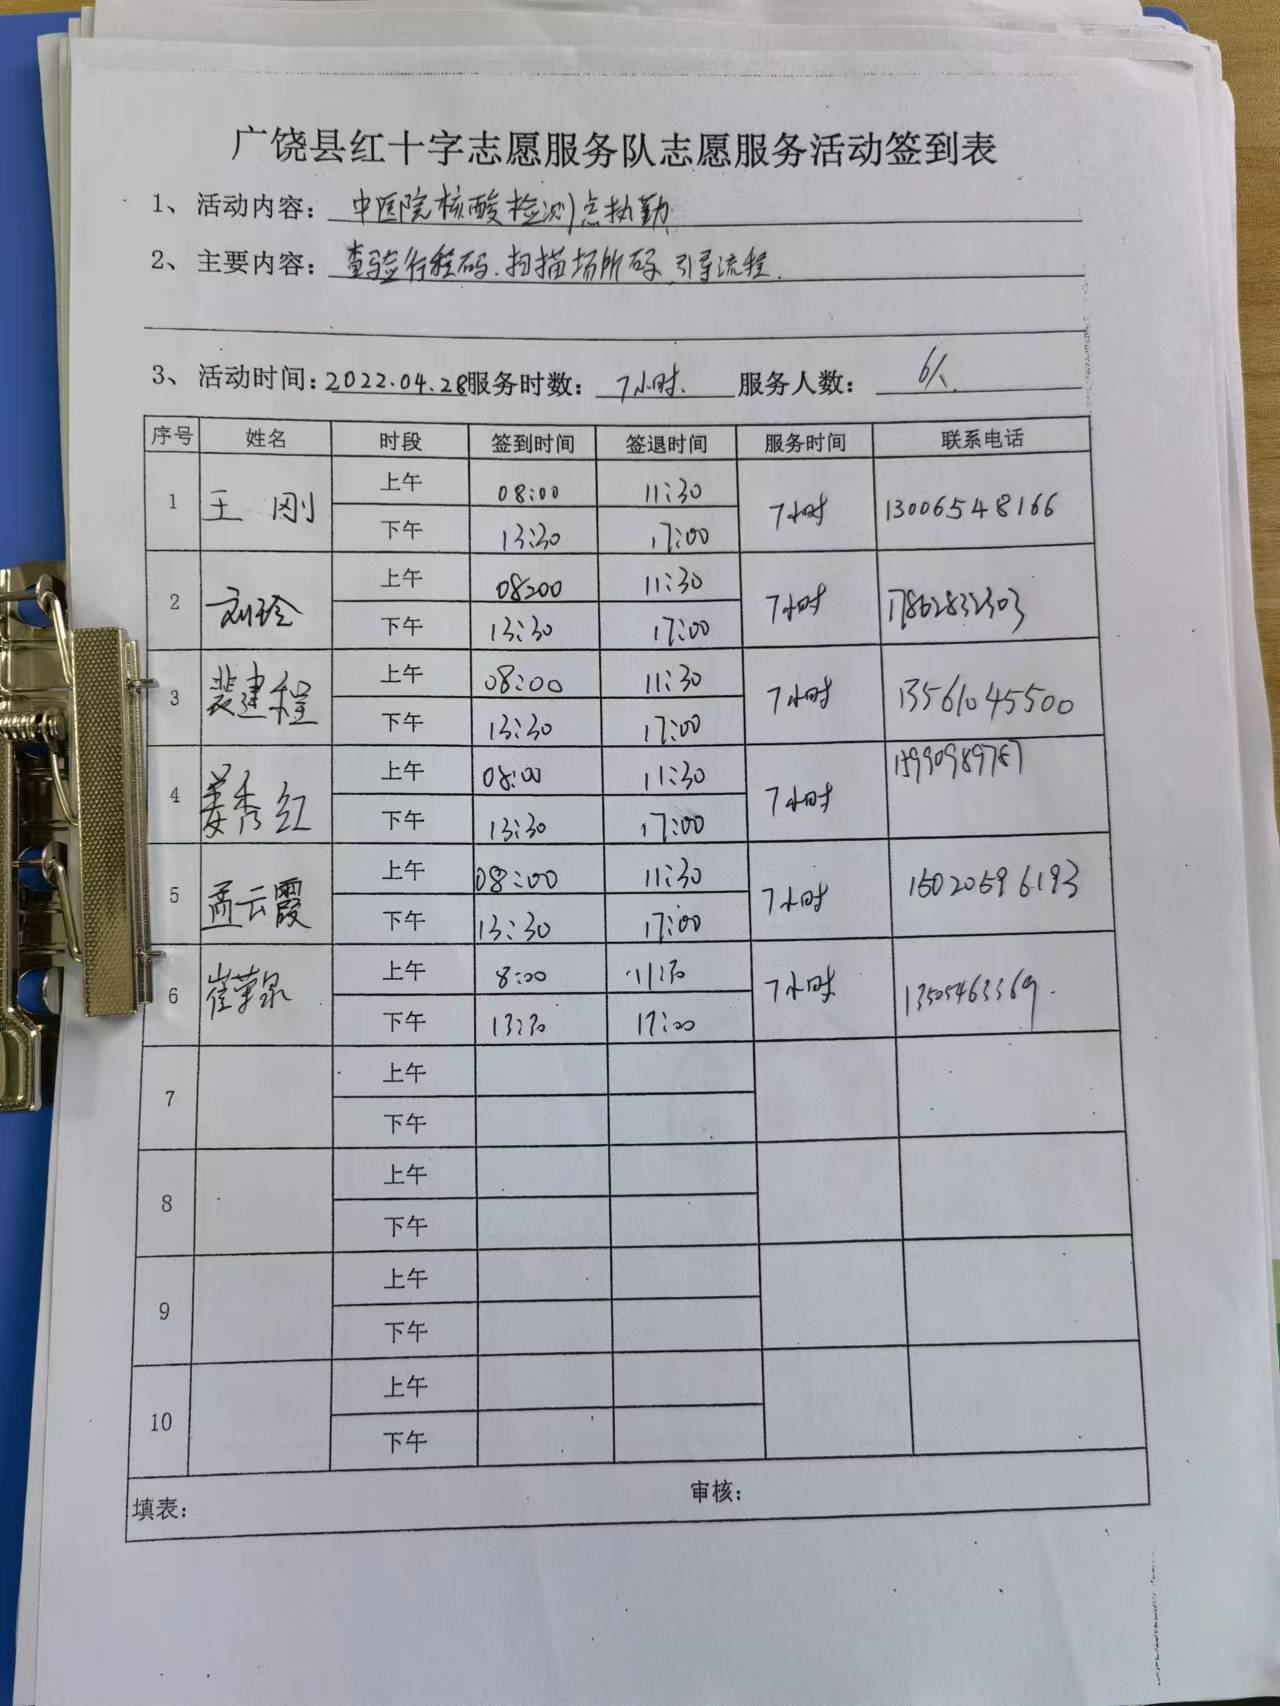 广饶县红十字志愿服务队志愿服务活动签到表
1、活动内容：中医院核酸检测点执勤
2、主要内容：查验行程码.扫描场所码.引导流程.
3、活动时间：2022.04.28服务时数：7小时.服务人数：6人.
序号 姓名 时段 签到时间 签退时间 服务时间 联系电话
1 王刚 上午 08:00 11:30 7小时 13006548166
下午 13:30 17:00
2 刘玲 上午 08:00 11:30 7小时 17862832303
下午 13:30 17:00
3 裴建程 上午 08:00 11:30 7小时 13561045500
下午 13:30 17:00
4 姜秀红 上午 08:00 11:30 7小时
下午 13:30 17:00
5 孟云霞 上午 08:00 11:30 7小时 15020596193
下午 13:30 17:00
6 上午 8:00 11:30 7小时 13505463369.
下午 13:30 17:00
7 上午
下午
8 上午
下午
9 上午
下午
10 上午
下午
填表： 审核：